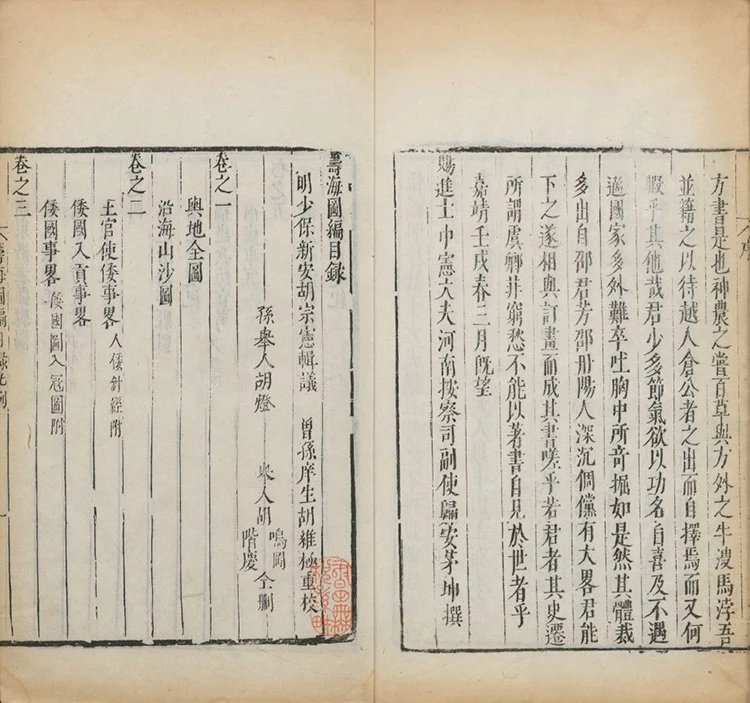 方書是也神農之嘗百草與方外之牛溲馬浡吾
並籍之以待越人倉公者之出而自擇焉而又何
暇乎其他哉君少多節氣欲以功名自喜及不遇
適國家多外難卒吐胸中所竒掘如是然其體裁
多出自邵君芳邵丹陽人深沉倜儻有大畧君能
下之遂相與訂畫而成其書嗟乎若君者其史遷
所謂虞卿非窮愁不能以著書自見於世者乎
嘉靖壬戌春三月旣望
賜進士中憲大夫河南按察司副使歸安茅坤撰
籌海圖編目録
明少保新安胡宗憲輯議 曾孫庠生胡維極重校
孫舉人胡燈 舉人胡鳴岡階慶 仝刪
卷之一
輿地全圖
沿海山沙圖
卷之二
王官使倭事畧 入倭針經附
倭國入貢事畧
倭國事畧 倭國圖入寇圖附
卷之三